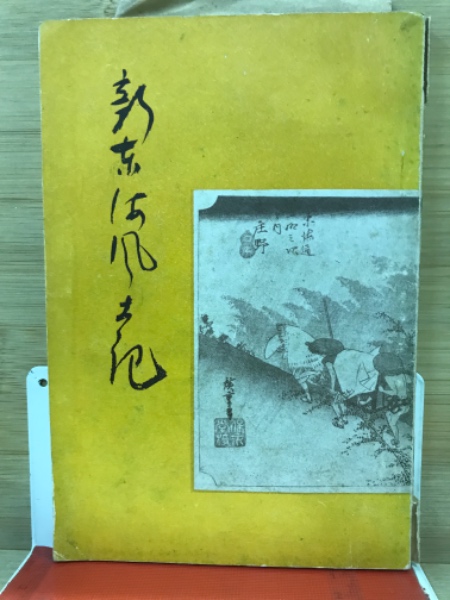 新東海風土記
東海道
五十三次
之内
庄野
廣重画